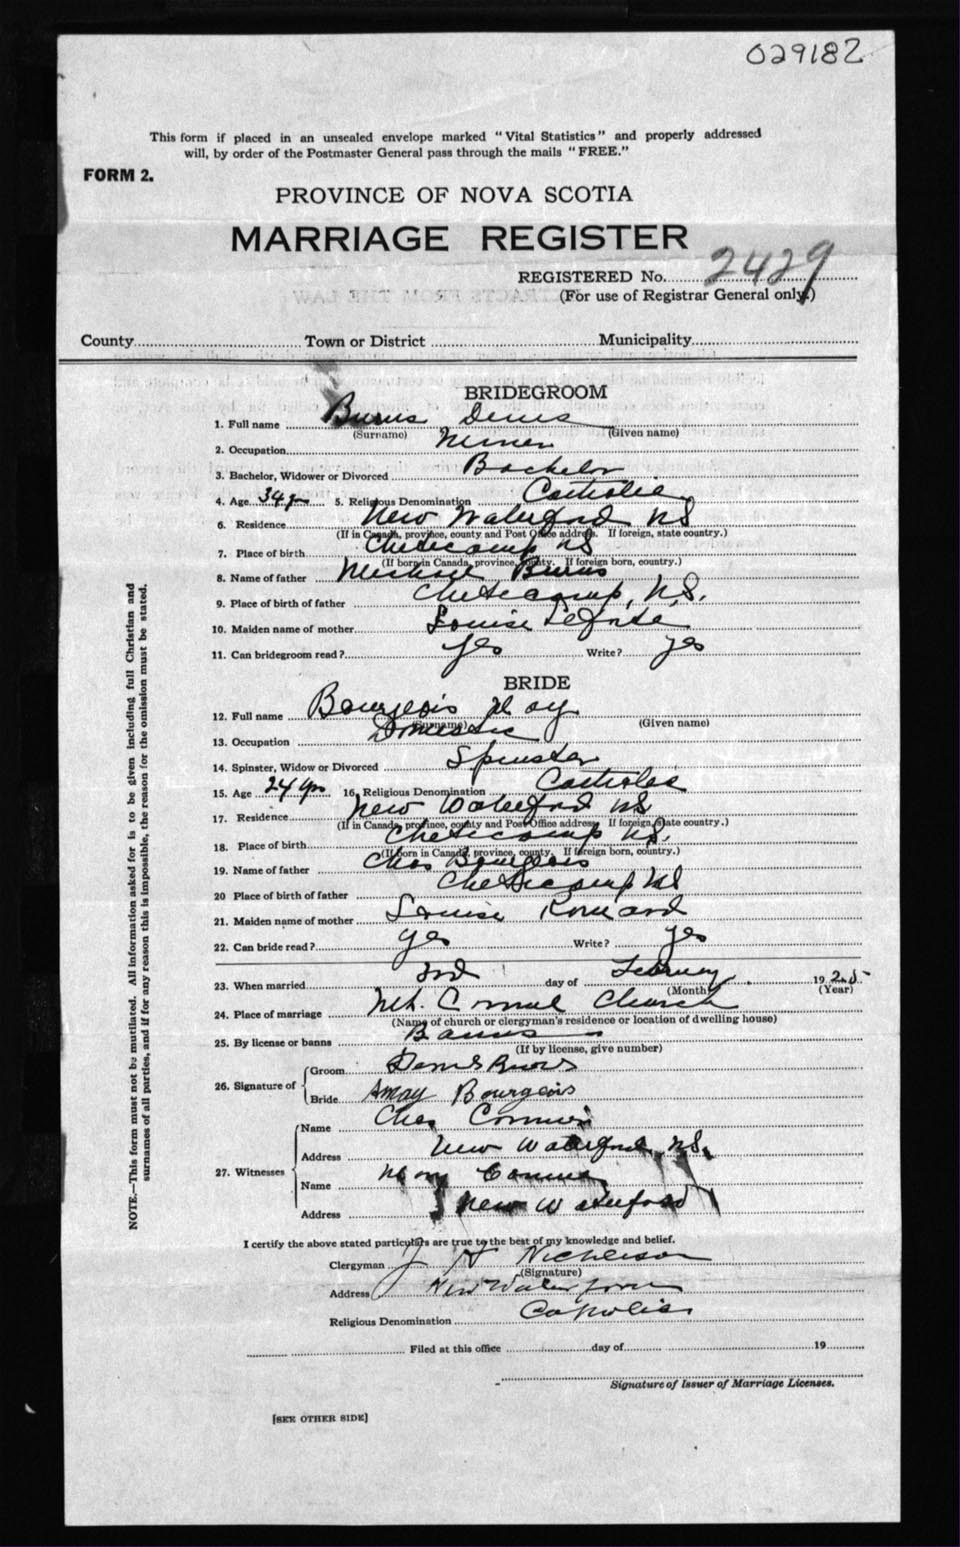 029182
This form if placed in an unsealed envelope marked "Vital Statistics" and properly addressed
will, by order of the Postmaster General pass through the mails "FREE."
FORM 2.
PROVINCE OF NOVA SCOTIA
MARRIAGE REGISTER
REGISTERED No. 2429
(For use of Registrar General only.)
County Town or District Municipality
BRIDEGROOM
1. Full name Burns Denis
(Surname) (Given name)
2. Occupation Miner
3. Bachelor, Widower or Divorced Bachelor
4. Age 34 yrs 5. Religious Denomination Catholic
6. Residence New Waterford NS
(If in Canada, province, county and Post Office address. If foreign, state country.)
7. Place of birth Cheticamp NS
(If born in Canada, province, county. If foreign born, country.)
8. Name of father Michael Burns
9. Place of birth of father Cheticamp, N.S.
10. Maiden name of mother Louise
11. Can bridegroom read? yes Write? yes
BRIDE
12. Full name Bourgeois
(Surname) (Given name)
13. Occupation Domestic
14. Spinster, Widow or Divorced Spinster
15. Age 24 yrs 16. Religious Denomination Catholic
17. Residence New Waterford NS
(If in Canada, province, county and Post Office address. If foreign, state country.)
18. Place of birth Cheticamp NS.
(If born in Canada, province, county. If foreign born, country.)
19. Name of father Chas Bourgeois
20 Place of birth of father Cheticamp NS
21. Maiden name of mother Louise
22. Can bride read? yes Write? yes
23. When married 3rd day of February 1925
(Month) (Year)
24. Place of marriage Mt. Carmel Church
(Name of church or clergyman's residence or location of dwelling house)
25. By license or banns Banns
(If by license, give number)
26. Signature of Groom Denis Burns
Bride Amay Bourgeois
27. Witnesses Name Chas
Address New Waterford, N.S.
Name
Address New Waterford
I certify the above stated particulars are true to the best of my knowledge and belief.
Clergyman J H Nicholson
(Signature)
Address New Waterford
Religious Denomination Catholic
Filed at this office day of 19
Signature of Issuer of Marriage Licenses.
[SEE OTHER SIDE]
NOTE.—This form must not be mutilated. All information asked for is to be given including full Christian and
surnames of all parties, and if for any reason this is impossible, the reason for the omission must be stated.